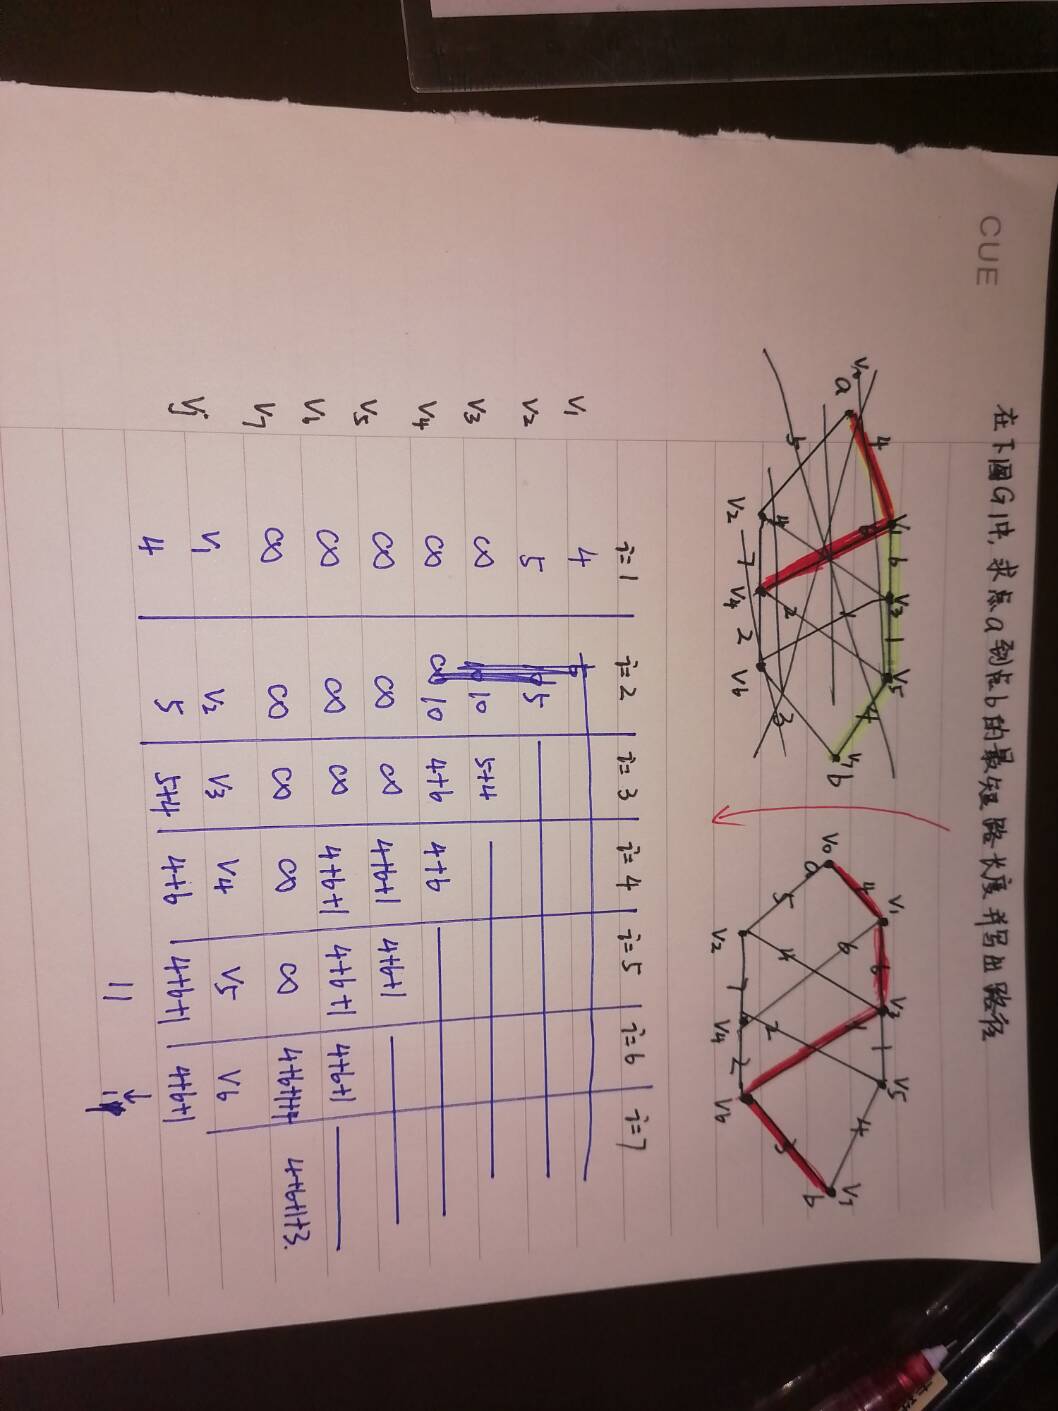 CUE
在下图G中, 求点a到点b的最短路长度并写出路径
a 4 V1 6 V3 1 V5 4 V7 b
5 4 6 2 1 3
V2 7 V4 2 V6
V0 a 4 V1 6 V3 1 V5 4 V7 b
5 4 6 2 1 3
V2 7 V4 2 V6
i=1 i=2 i=3 i=4 i=5 i=6 i=7
V1 4
V2 5 5
V3 ∞ 10 5+4
V4 ∞ 10 4+6 4+6
V5 ∞ ∞ ∞ 4+6+1 4+6+1
V6 ∞ ∞ ∞ 4+6+1 4+6+1 4+6+1
V7 ∞ ∞ ∞ ∞ ∞ 4+6+1+4 4+6+1+3.
Vj V1 V2 V3 V4 V5 V6
4 5 5+4 4+6 4+6+1 4+6+1
11